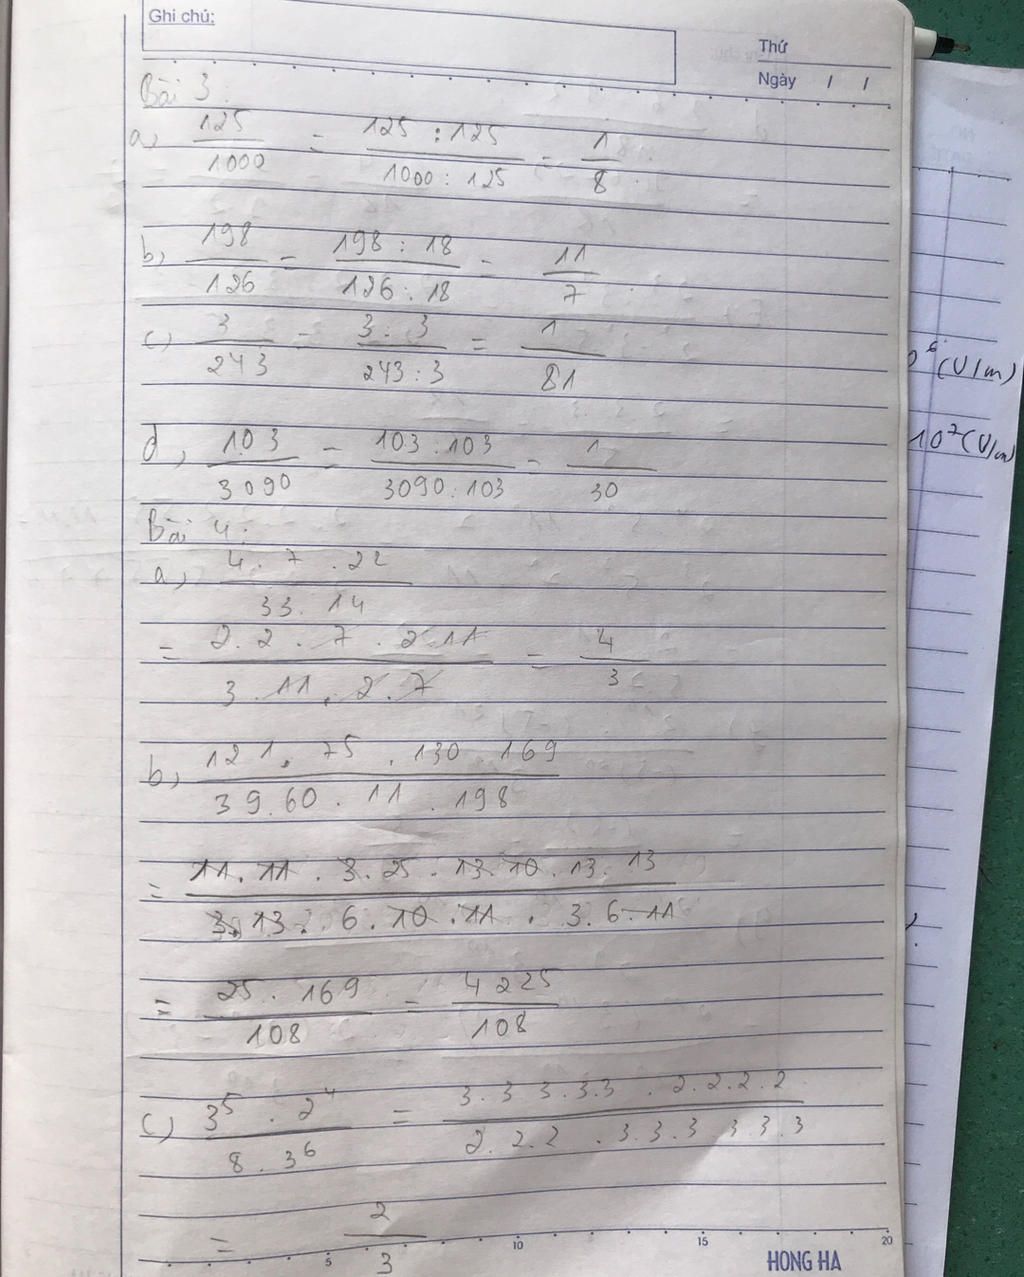 Ghi chú:
Thứ
Ngày / /
Bài 3:
a, 125/1000 = 125 : 125/1000 : 125 = 1/8
b, 198/126 = 198 : 18/126 : 18 = 11/7
c) 3/243 = 3 : 3/243 : 3 = 1/81
d, 103/3090 = 103 : 103/3090 : 103 = 1/30
Bài 4:
a, 4 . 7 . 22/33 . 14
= 2 . 2 . 7 . 2 . 11/3 . 11 . 2 . 7 = 4/3
b, 121 . 75 . 130 . 169/39 . 60 . 11 . 198
= 11 . 11 . 3 . 25 . 13 . 10 . 13 . 13/3 . 13 . 6 . 10 . 11 . 3 . 6 . 11
= 25 . 169/108 = 4225/108
c) 3⁵ . 2⁴/8 . 3⁶ = 3 . 3 3 . 3 . 3 . 2 . 2 . 2 . 2/2 . 2 . 2 . 3 . 3 . 3 3 3 . 3
= 2/3
5 10 15 20
HONG HA
⁶ (V/m)
10⁷ (V/m)